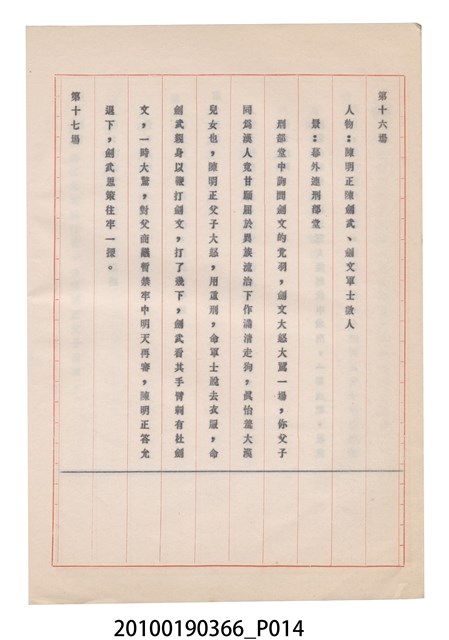 第十六場
人物：陳明正陳劍武、劍文軍士數人
景：幕外連刑部堂
刑部堂中詢問劍文的党羽，劍文大怒大罵一場，你父子
同為漢人竟甘願屈於異族流治下作滿清走狗，真怡羞大漢
兒女也，陳明正父子大怒，用重刑，命軍士脫去衣服，命
劍武親身以鞭打劍文，打了幾下，劍武看其手臂刺有杜劍
文，一時大驚，對父商議暫禁牢中明天再審，陳明正答允
退下，劍武思策往牢一探。
第十七場
20100190366_P014